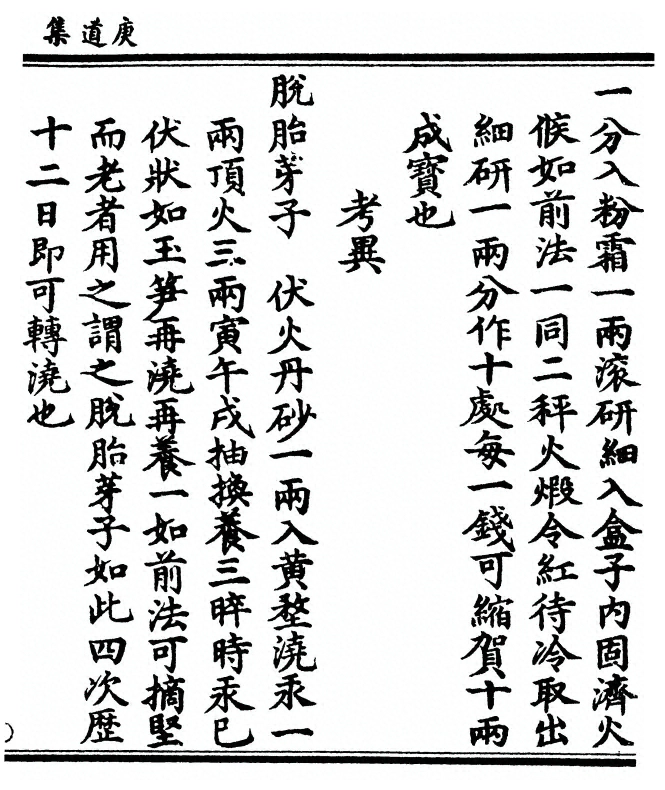 庚道集
一分入粉霜一兩滚研細入盒子内固濟火
候如前法一同二秤火煅令紅待冷取出
細研一兩分作十處每一錢可縮賀十兩
成寳也
考異
脫胎芽子　伏火丹砂一兩入黄墪澆汞一
兩頂火三兩寅午戌抽換養三晬時汞巳
伏狀如玉笋再澆再養一如前法可摘堅
而老者用之謂之脫胎芽子如此四次歴
十二日即可轉澆也